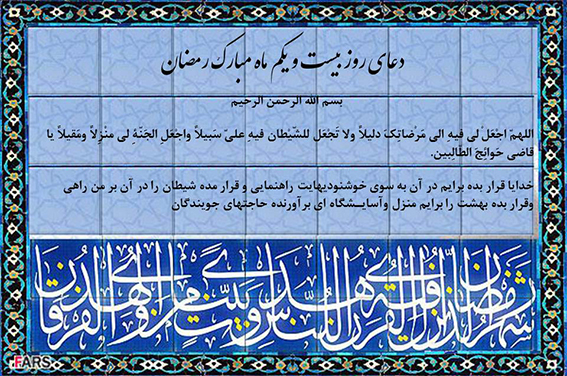 دعای روز بیست و یکم ماه مبارک رمضان
بسم الله الرحمن الرحیم
اللهمّ اجْعَلْ لی فیهِ الی مَرْضاتِکَ دلیلاً ولا تَجْعَل للشّیْطان فیهِ علیّ سَبیلاً واجْعَلِ الجَنّةِ لی منْزِلاً ومَقیلاً یا
قاضی حَوائِجَ الطّالِبین.
خدایا قرار بده برایم در آن به سوی خوشنودیهایت راهنمایی و قرار مده شیطان را در آن بر من راهی
وقرار بده بهشت را برایم منزل وآسایــشگاه ای برآورنده حاجتهای جویندگان
شهر رمضان الذی انزل فیه القرآن هدی للناس و بینت من الهدی و الفرقان
FARS